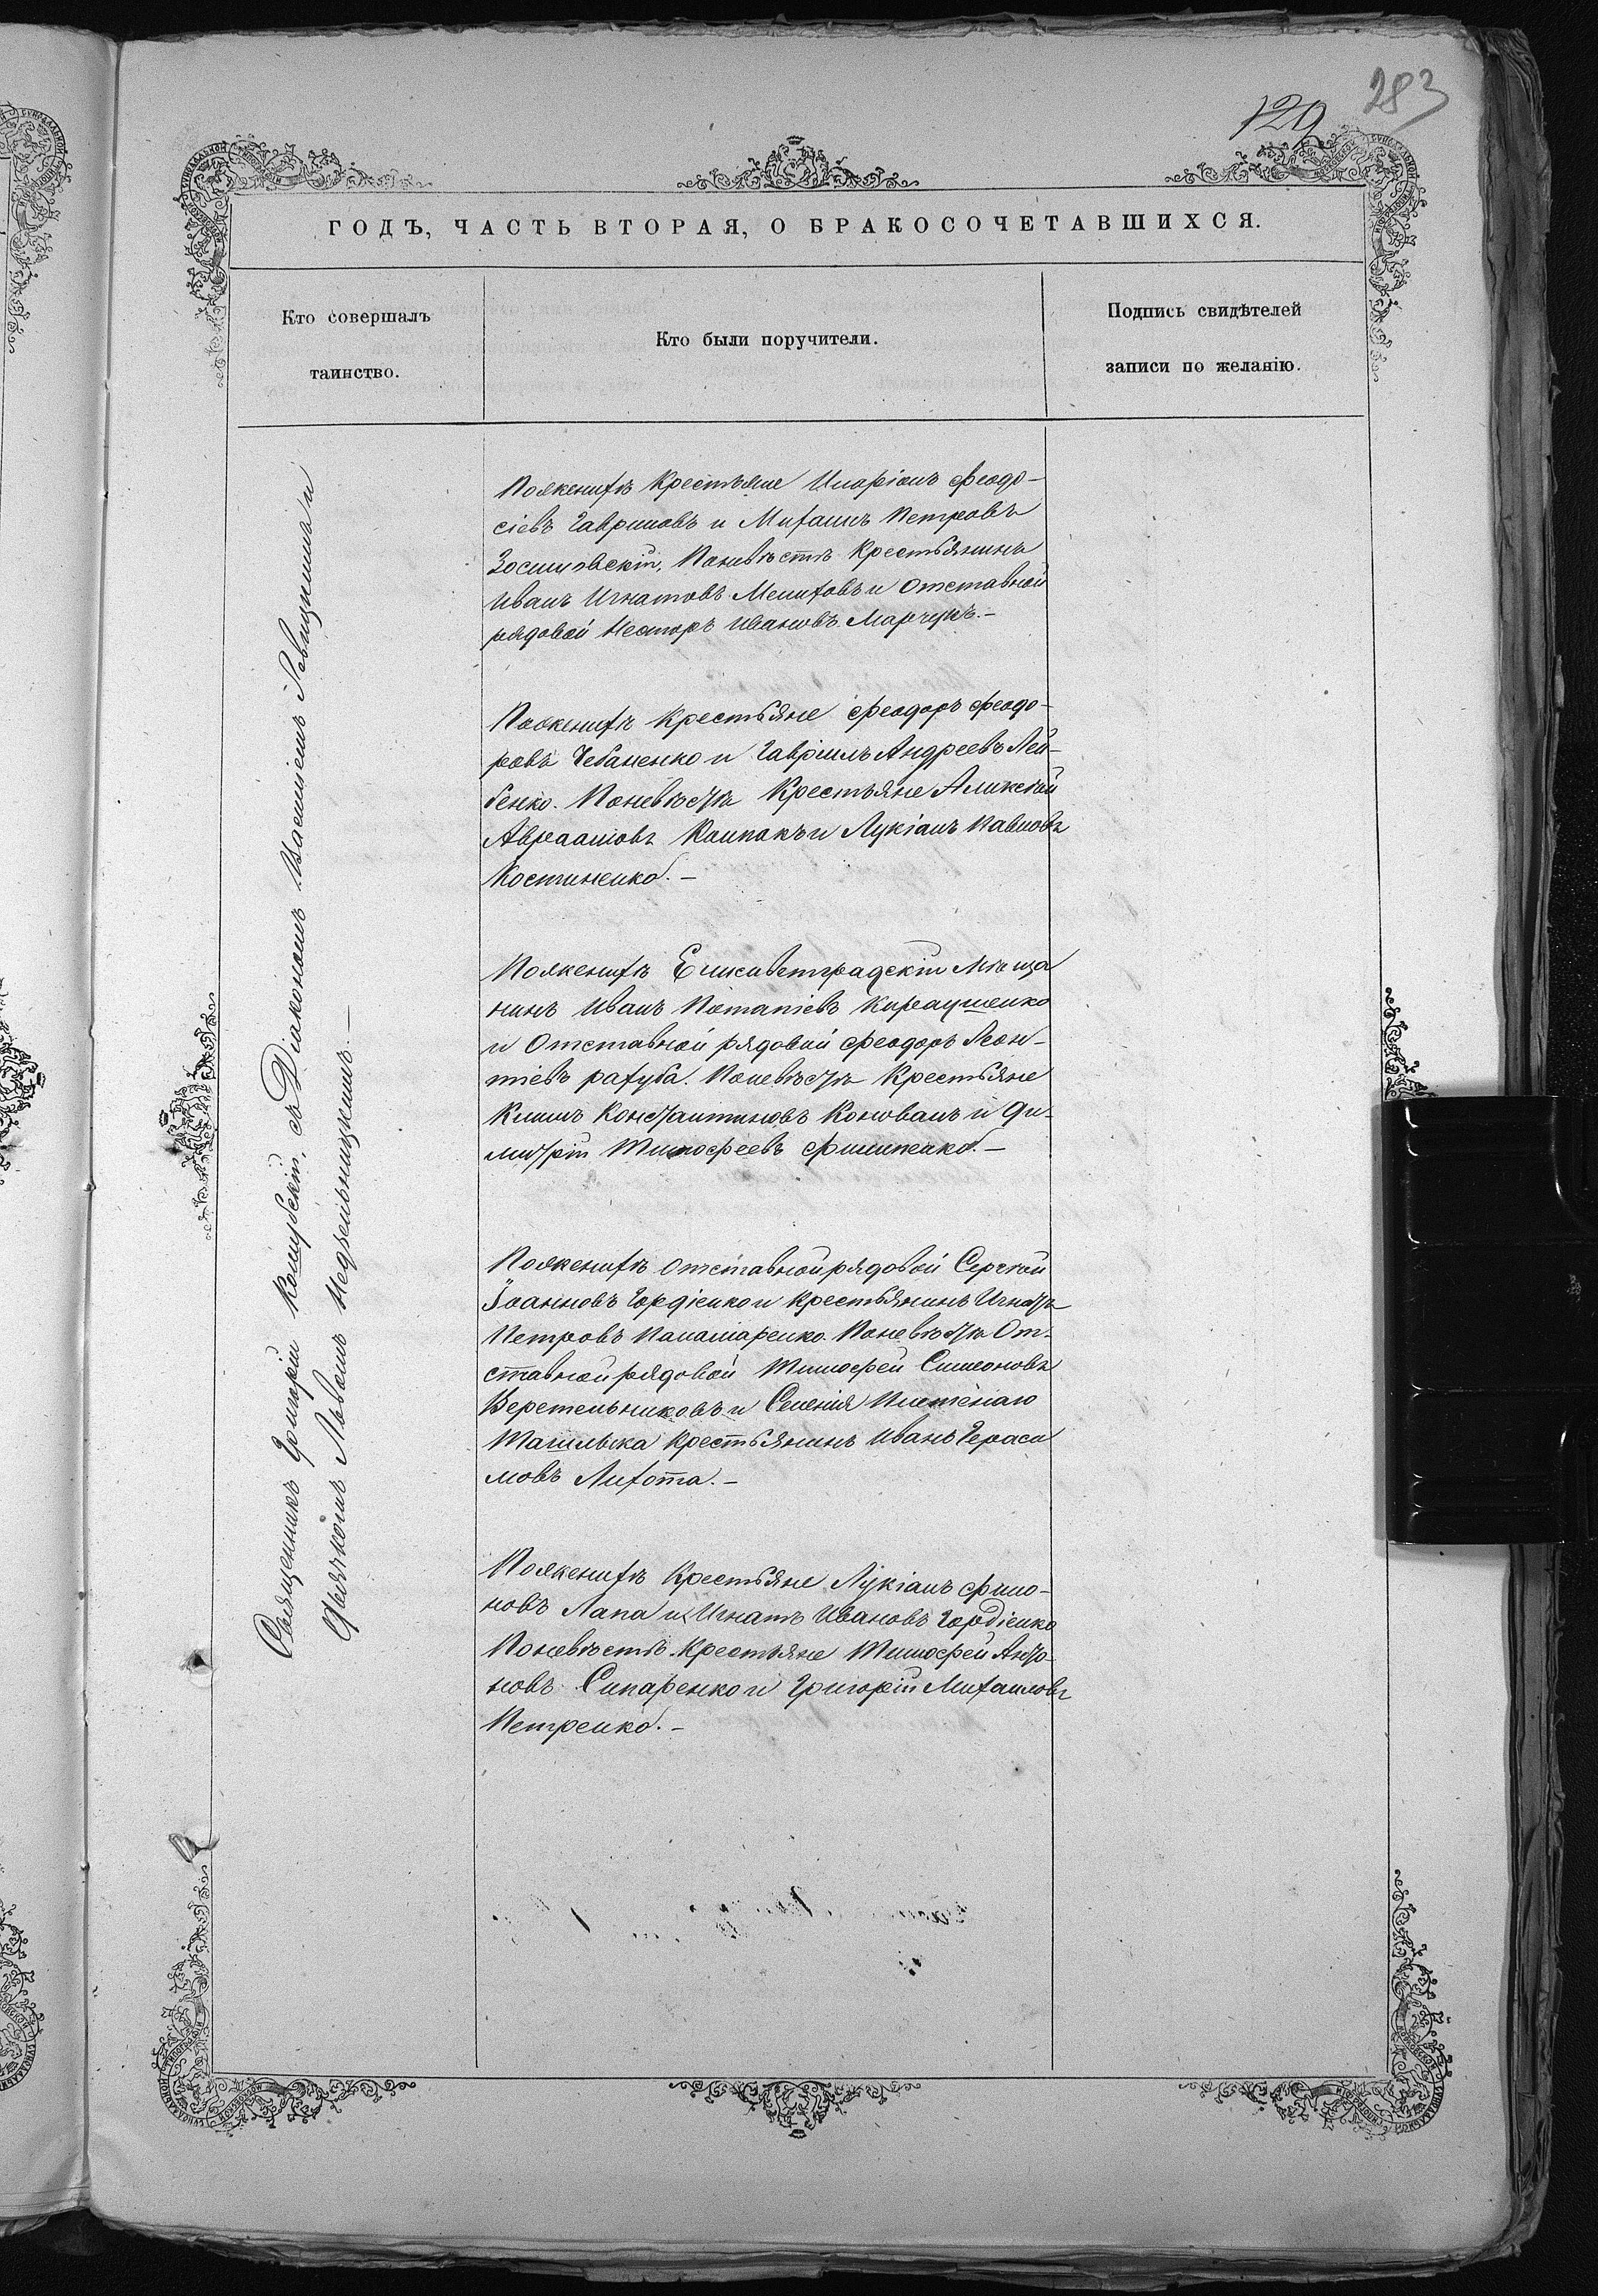 283
129
ГОДЪ, ЧАСТЬ ВТОРАЯ, О БРАКОСОЧЕТАВШИХСЯ.
Кто совершалъ
таинство.
Кто были поручители.
Подпись свидѣтелей
записи по желанію.
Священникъ Григорій Кошубскій, съ Діакономъ Василіемъ Левицкимъ и
Дьячкомъ Львомъ Недзельницкимъ.—
По женихѣ Крестьяне Иларіонъ Феодо-
сіевъ Гавриловъ и Михаилъ Петровъ
Зосимовскій, По невѣстѣ Крестьянинъ
Иванъ Игнатовъ Мелиховъ и Отставной
рядовой Несторъ Ивановъ Марчукъ.—
По женихѣ Крестьяне Феодоръ Феодо-
ровъ Чебаненко и Гавріилъ Андреевъ Лей-
бенко. По невѣстѣ Крестьяне Алексѣй
Авраамовъ Колпакъ и Лукіанъ Павловъ
Костиненко.—
По женихѣ Елисаветградскій Мѣща
нинъ Иванъ Потапіевъ
и Отставной рядовой Феодоръ Леон-
тіевъ Рахуба. По невѣстѣ Крестьяне
Климъ Константиновъ Коновалъ и Ди-
митрій Тимофеевъ Филипенко.—
По женихѣ Отставной рядовой Сергѣй
Іоанновъ Гордіенко и Крестьянинъ Игнатъ
Петровъ Паламаренко. По невѣстѣ От-
ставной рядовой Тимофей Симеоновъ
Веретельниковъ и Селенія Плетенаго
Ташлыка Крестьянинъ Иванъ Гераси
мовъ Лихота.—
По женихѣ Крестьяне Лукіанъ Фило-
новъ Лапа и Игнатъ Ивановъ Гордіенко
По невѣстѣ Крестьяне Тимофей Анто-
новъ Сипаренко и Григорій Михаиловъ
Петренко.—